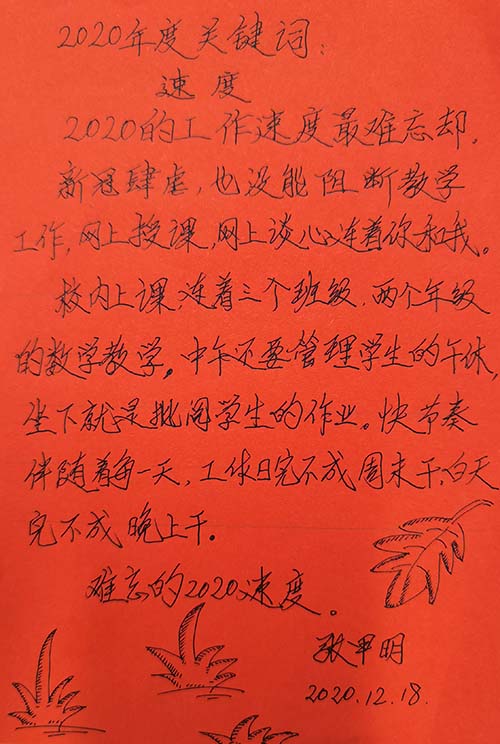 2020年度关键词：
速度
2020的工作速度最难忘却，
新冠肆虐，也没能阻断教学
工作，网上授课，网上谈心连着你和我。
校内上课，连着三个班级，两个年级
的数学教学。中午还要管理学生的午休，
坐下就是批阅学生的作业。快节奏
伴随着每一天，工休日完不成周末干，白天
完不成晚上干。
难忘的2020速度。
张甲明
2020.12.18.